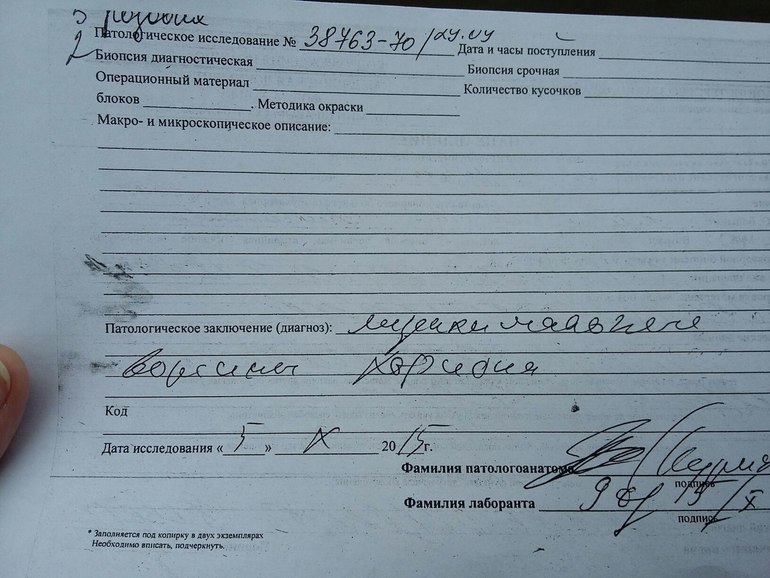 Патологическое исследование № 38763-70 Дата и часы поступления
2 Биопсия диагностическая Биопсия срочная
Операционный материал Количество кусочков
блоков . Методика окраски
Макро- и микроскопическое описание:
Патологическое заключение (диагноз):
ворсины хориона
Код
Дата исследования « 5 » X 20 15 г.
Фамилия патологоанатома
подпись
Фамилия лаборанта
подпись
* Заполняется под копирку в двух экземплярах
Необходимо вписать, подчеркнуть.